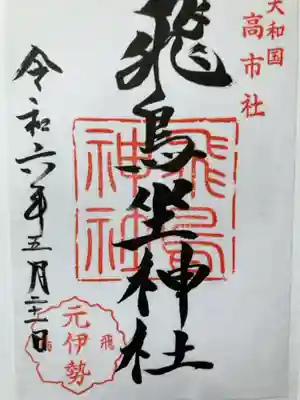 大和国
高市社
飛鳥坐神社
飛鳥
神社
令和六年五月二十二日
元伊勢
飛